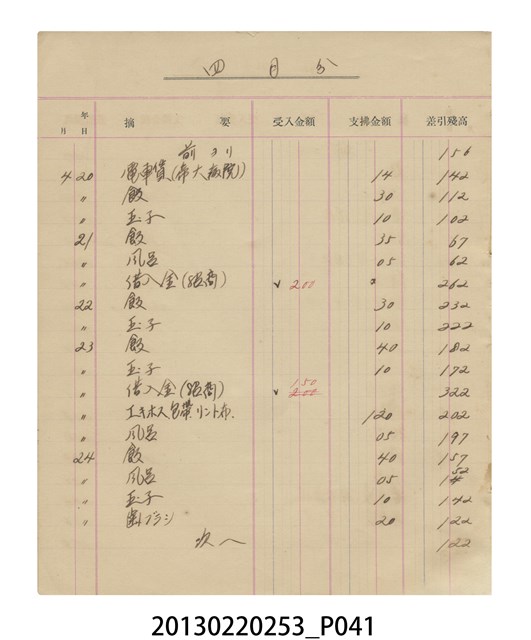 四月分
年
月 日 摘 要 受入金額 支拂金額 差引残高
前ヨリ 156
4 20 電車賃(帝大病院) 14 142
〃 飯 30 112
〃 玉子 10 102
21 飯 35 67
〃 風呂 05 62
〃 借入金( 商) 200 262
22 飯 30 232
〃 玉子 10 222
23 飯 40 182
〃 玉子 10 172
150
〃 借入金( 商) 200 322
〃 エキホス 包帯 リント布. 120 202
〃 風呂 05 197
24 飯 40 157
〃 風呂 05 152
〃 玉子 10 142
〃 歯ブラシ 20 122
次へ 122
20130220253_P041